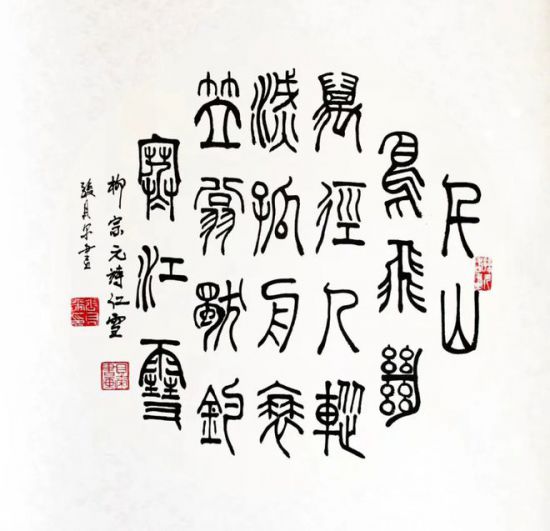 千山
鳥飛絕
萬徑人蹤
滅孤舟蓑
笠翁獨釣
寒江雪
柳宗元詩江雪